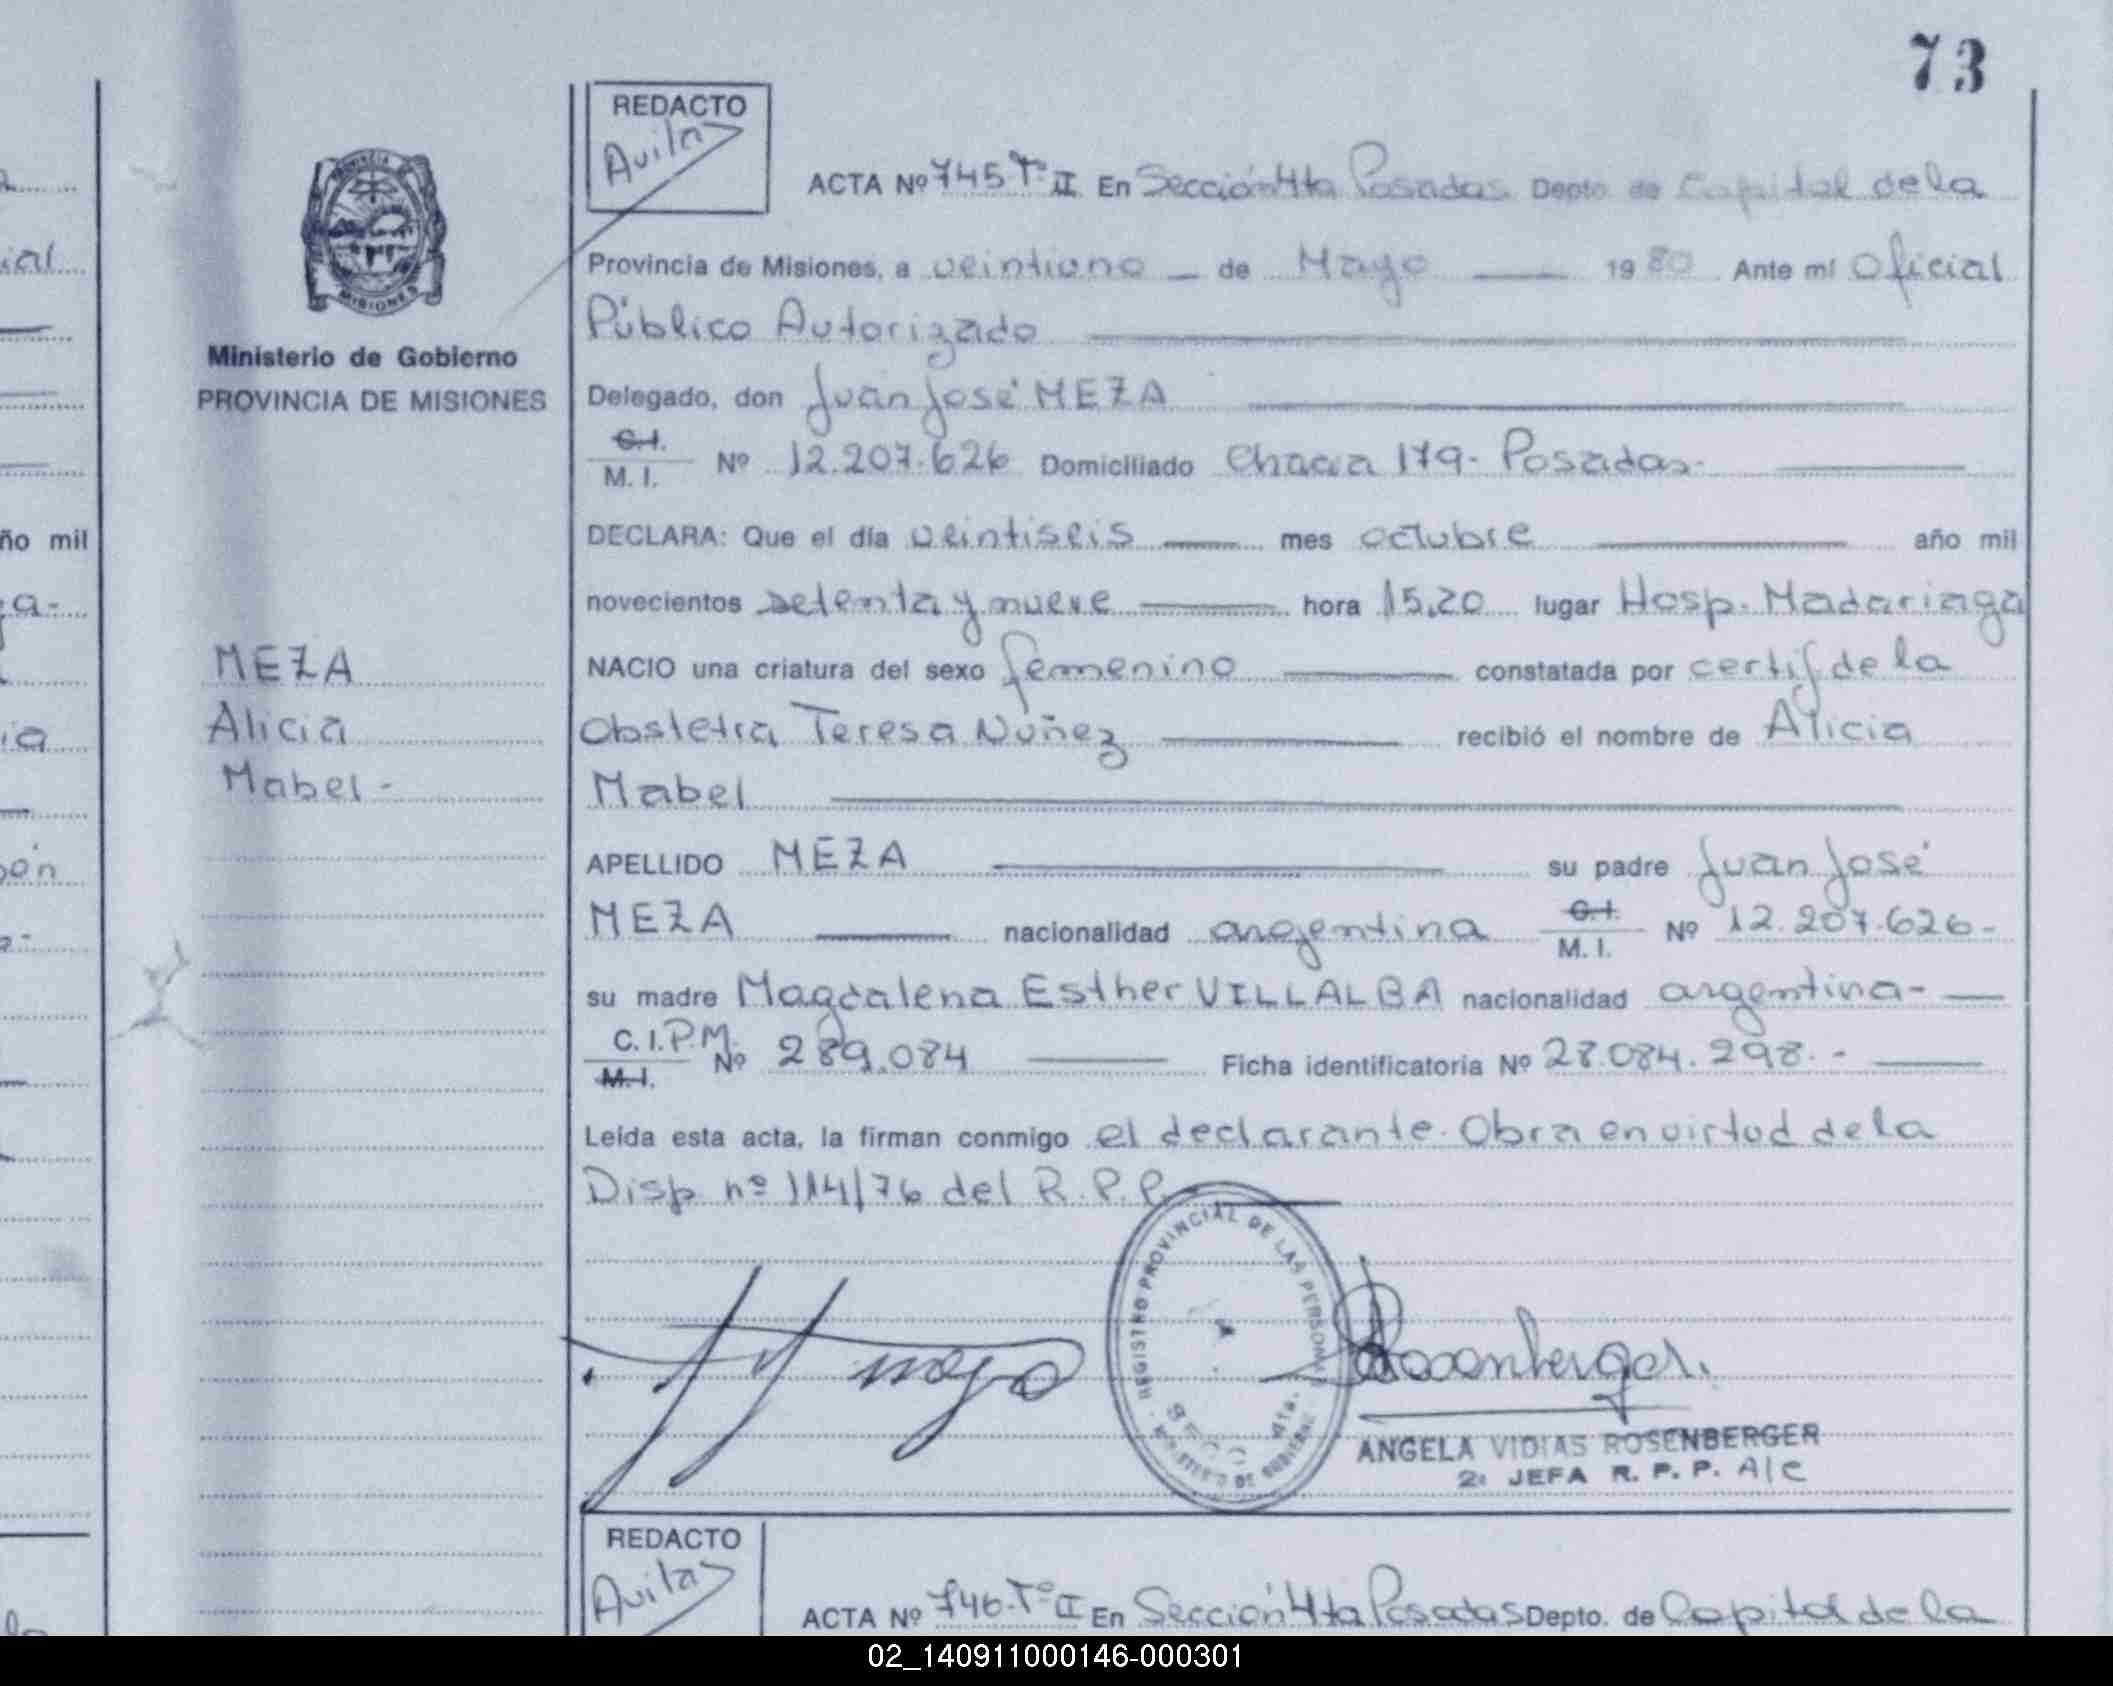 73
REDACTO
Avila
ACTA Nº 745 Tº II En Sección 4ta Posadas Depto. de Capital de la
PROVINCIA
MISIONES
Ministerio de Gobierno
PROVINCIA DE MISIONES
Provincia de Misiones, a veintiuno de Mayo 1980 Ante mí Oficial
Público Autorizado
Delegado, don Juan José MEZA
C.I.
M. I. Nº 12.207.626 Domiciliado Chacra 179- Posadas-
DECLARA: Que el día veintiseis mes octubre año mil
novecientos setenta y nueve hora 15,20 lugar Hosp. Madariaga
NACIO una criatura del sexo femenino constatada por certif de la
Obstetra Teresa Nuñez recibió el nombre de Alicia
Mabel
MEZA
Alicia
Mabel-
APELLIDO MEZA su padre Juan José
MEZA nacionalidad argentina C.I.
M. I. Nº 12.207.626-
su madre Magdalena Esther VILLALBA nacionalidad argentina-
C. I. P.M.
M.I. Nº 289.084 Ficha identificatoria Nº 28.084.298.-
Leída esta acta, la firman conmigo el declarante. Obra en virtud de la
Disp. nº 114/76 del R.P.P.
REGISTRO PROVINCIAL DE LAS PERSONAS
SECC 4ta.
MINISTERIO DE GOBIERNO
Rosenberger.
ANGELA VIDIAS ROSENBERGER
2ª JEFA R. P. P. A/C
REDACTO
Avila
ACTA Nº 746-Tº II En Sección 4ta Posadas Depto. de Capital de la
ial
ño mil
02_140911000146-000301